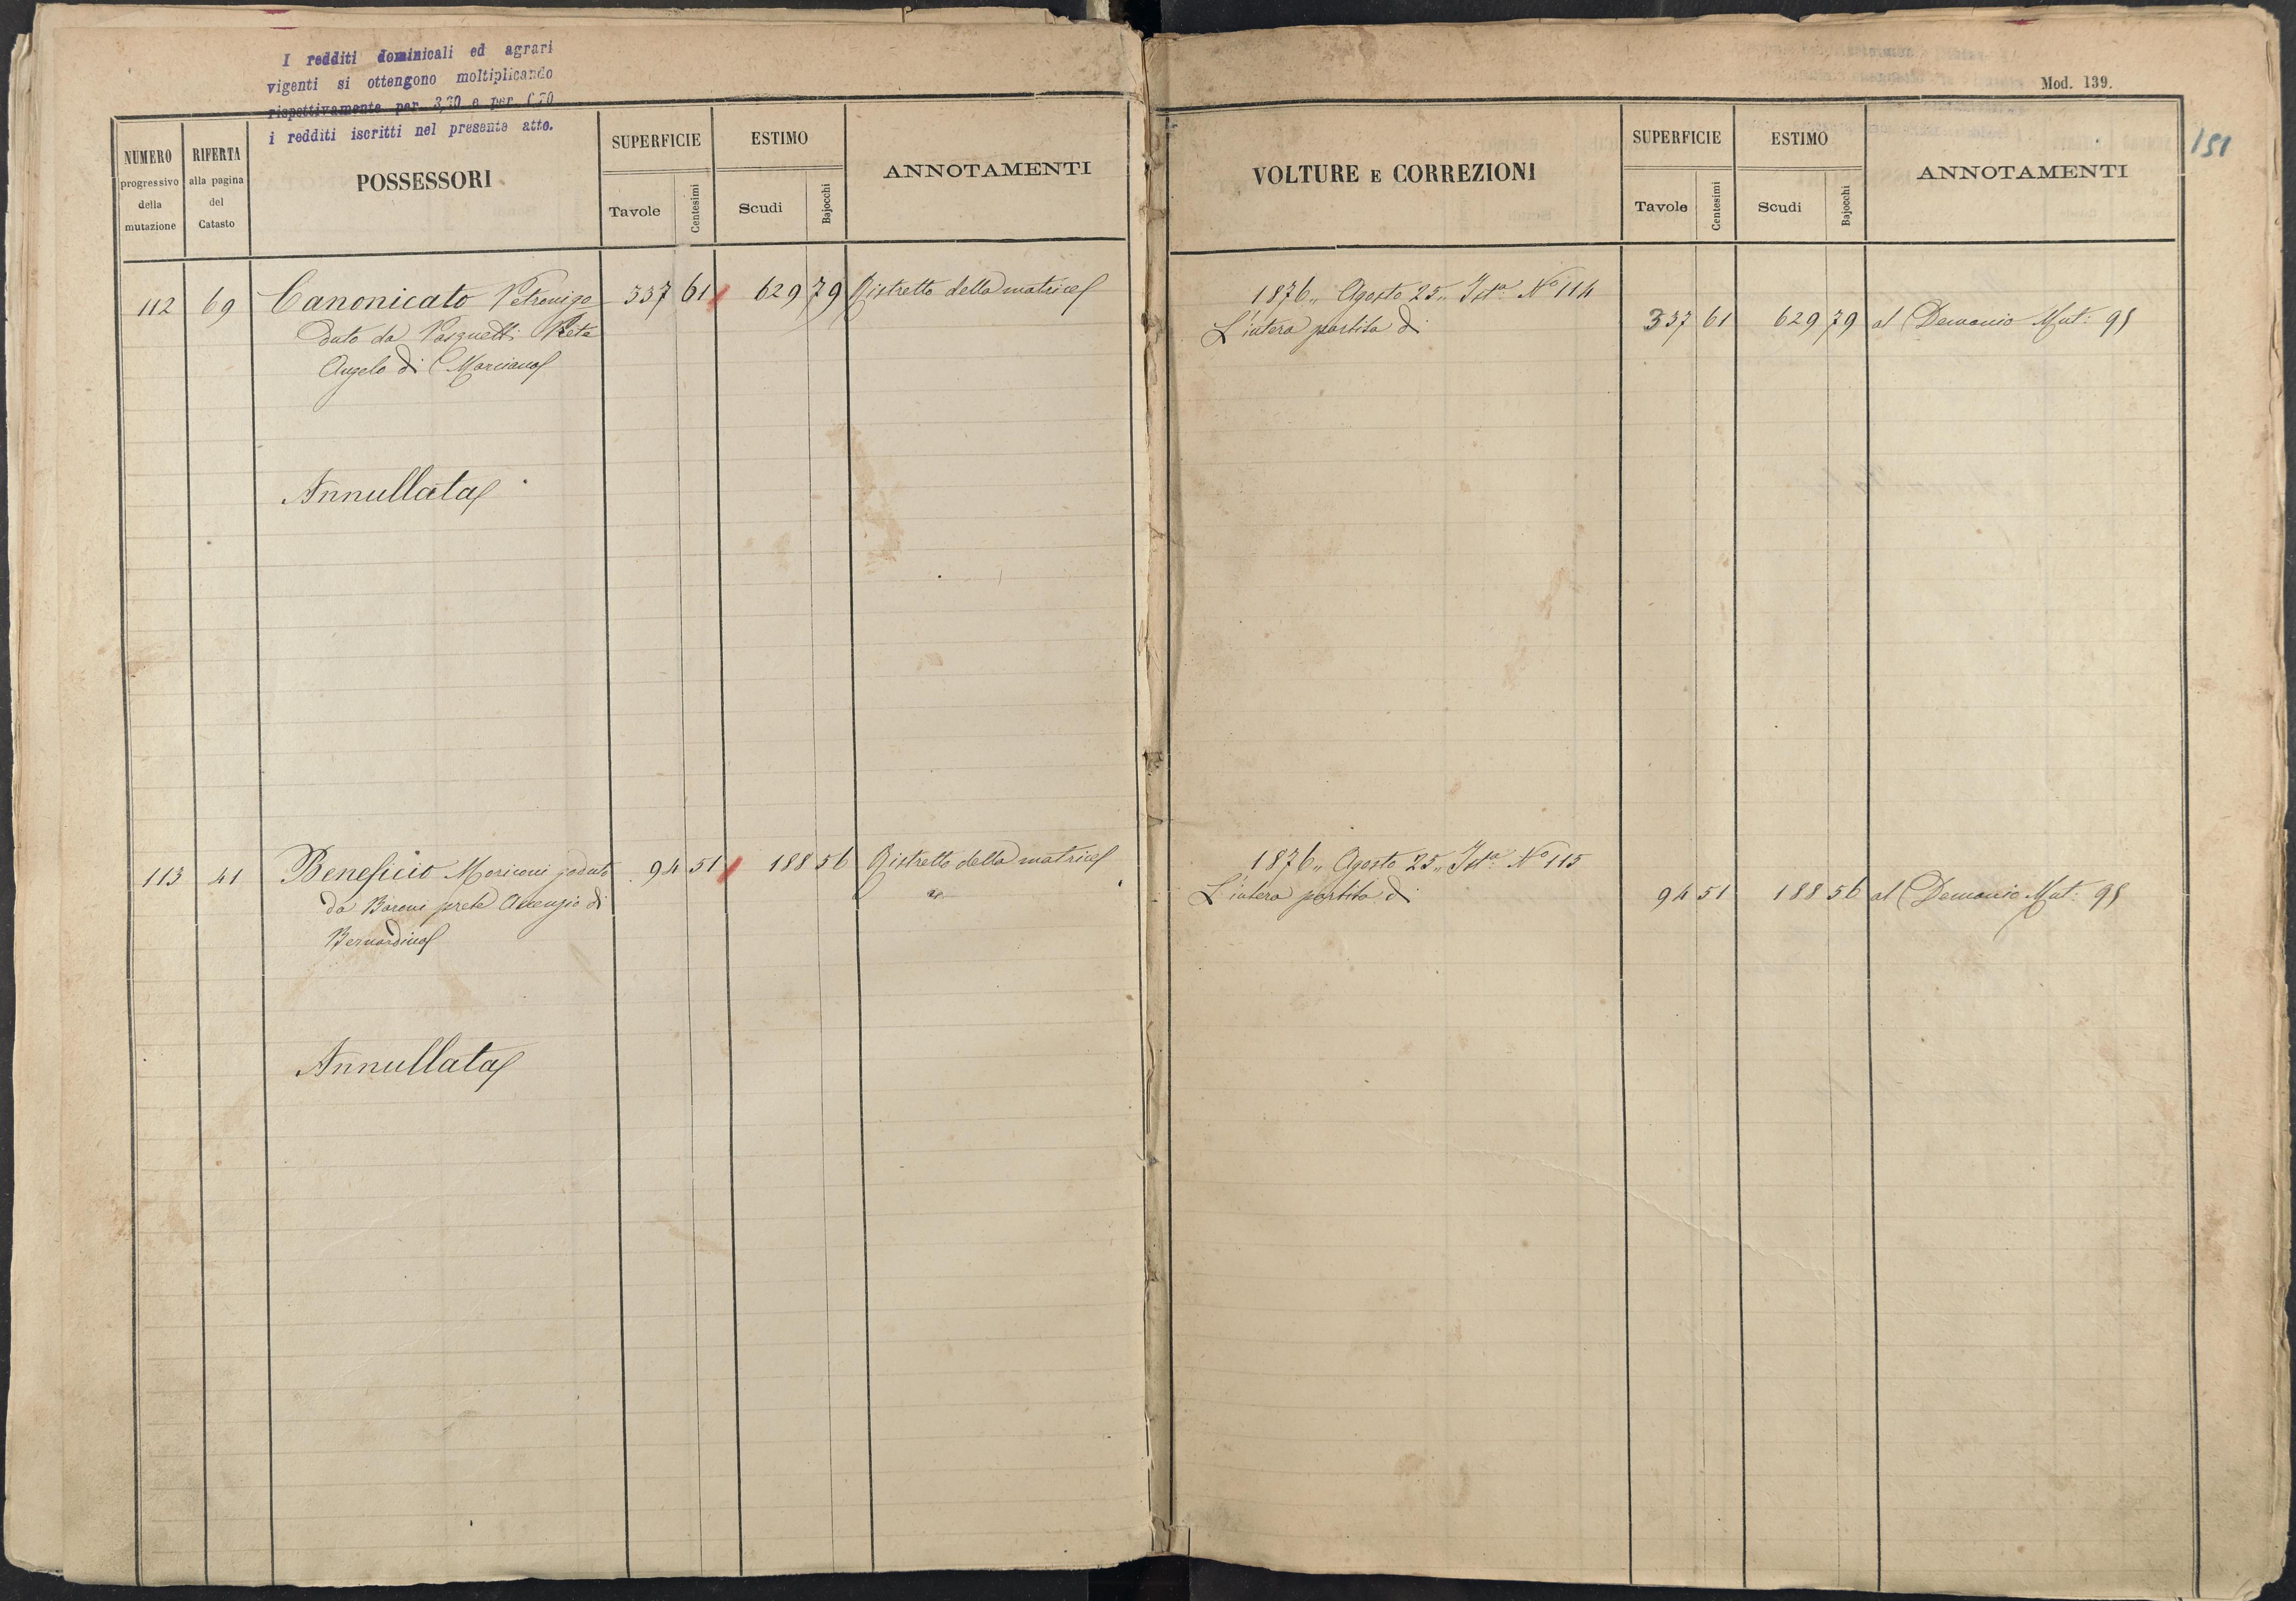 I redditi dominicali ed agrari
vigenti si ottengono moltiplicando
rispettivamente per 3,30 e per 0,70
i redditi iscritti nel presente atto.
NUMERO progressivo della mutazione
RIFERTA alla pagina del Catasto
POSSESSORI
SUPERFICIE
Tavole Centesimi
ESTIMO
Scudi Bajocchi
ANNOTAMENTI
112 69 Canonicato 337 61 629 79 Ristretto della matrice
duto da Pasquetti Prete
Angelo di Marciano
Annullata
113 41 Beneficio Moriconi goduto 94 51 188 56 Ristretto della matrice
da Baroni prete Assenzio di
Bernardino
Annullata
Mod. 139.
151
VOLTURE E CORREZIONI
SUPERFICIE
Tavole Centesimi
ESTIMO
Scudi Bajocchi
ANNOTAMENTI
1876 „ Agosto 25 „ Ista. No 114
L'intera partita di 337 61 629 79 al Demanio Mut:
1876 „ Agosto 25 „ Ista. No 115
L'intera partita di 94 51 188 56 al Demanio Mut: